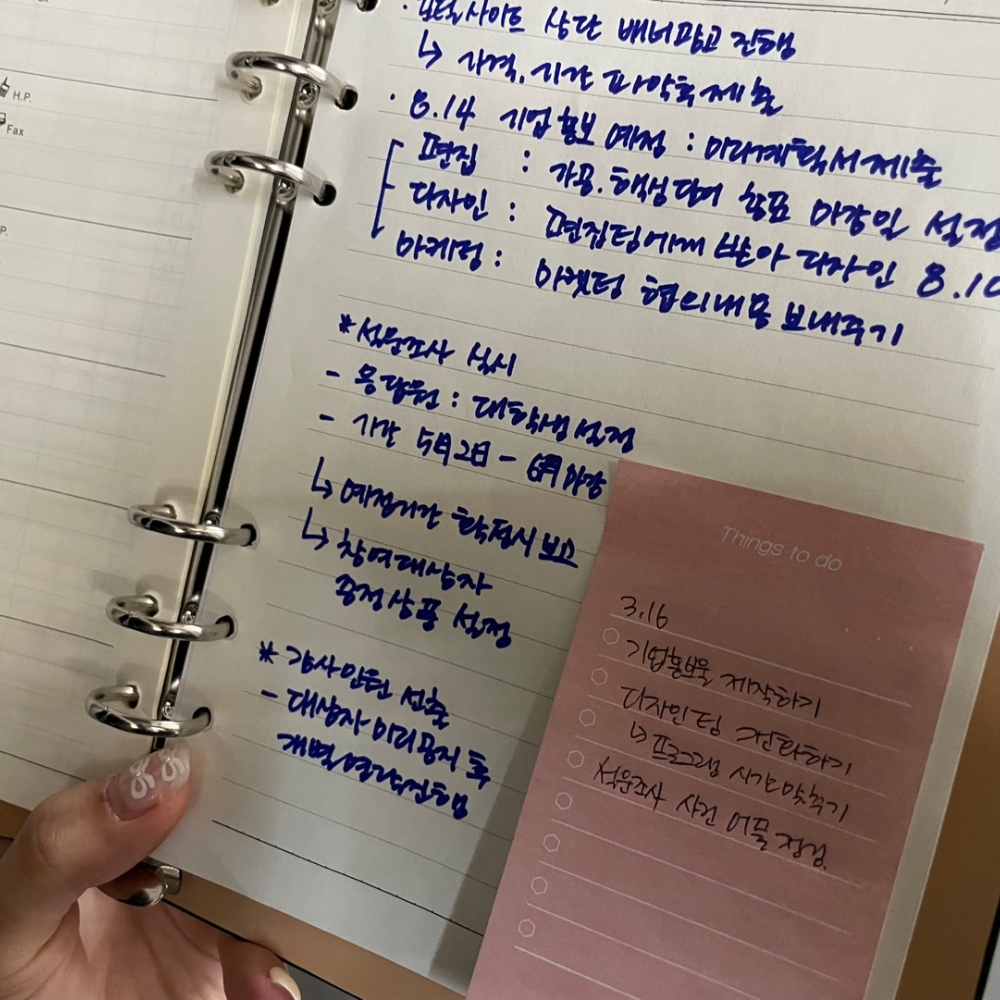 H.P.
Fax
P.
사이트 상단 배너광고 진행
↳ 가격, 시간 파악후 제출
· 8.14 기업홍보 예정 : 미리계획서제출
편집 : 가공.해쉥단어 황표 마감일 설정
디자인 : 편집팀에게 받아 디자인 8.10
마케팅 : 마켓팅 협의내용 보내주기
* 설문조사 실시
- 응답원 : 대학생 설정
- 기간 5月2日 - 6月 마감
↳ 예정기간 확정시 보고
↳ 참여대상자
증정상품 설정
* 감사인원 선출
- 대상자 미리공지 후
개별연락진행
Things to do
3.16
기업홍보물 제작하기
디자인팀 전화하기
↳ 프로그램 시간맞추기
설문조사 사전 어플 점검.